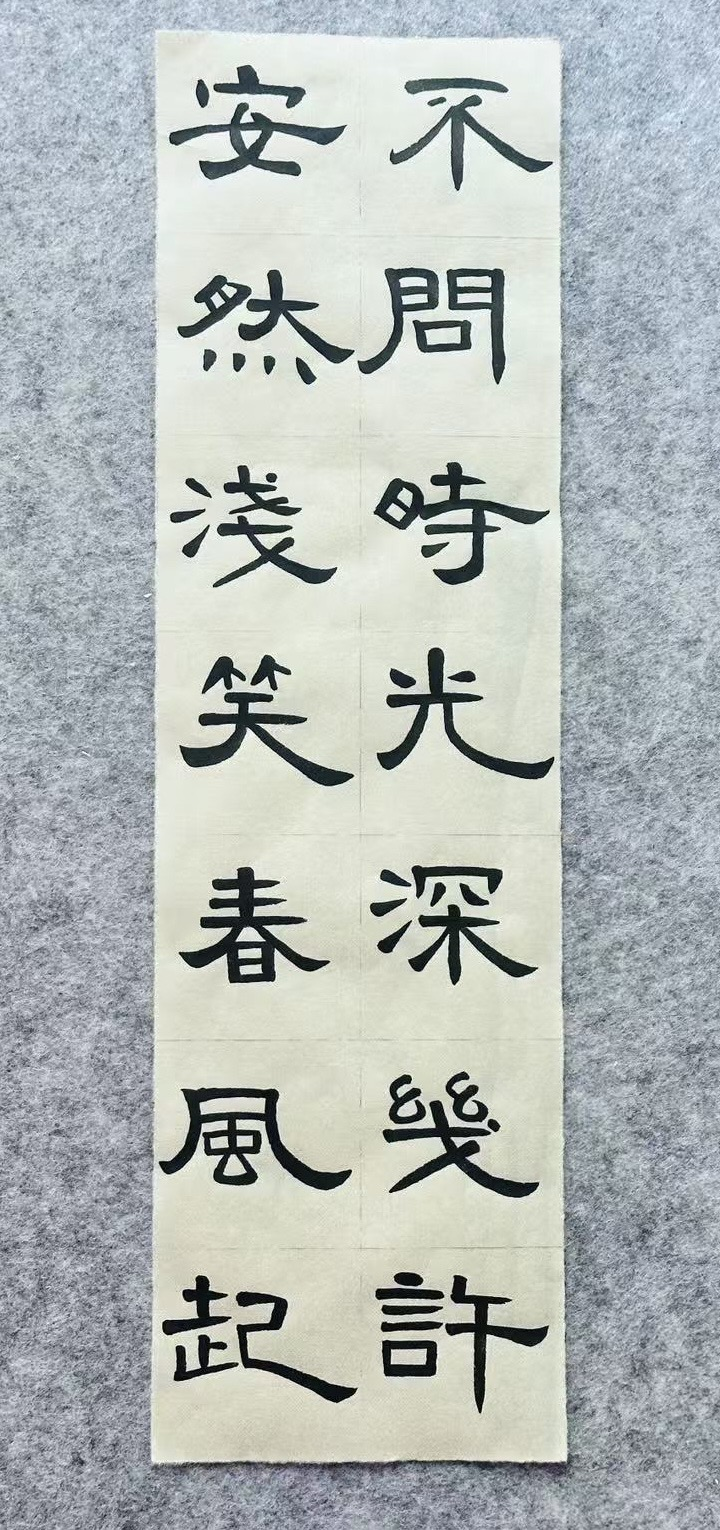 不問時光深幾許
安然淺笑春風起